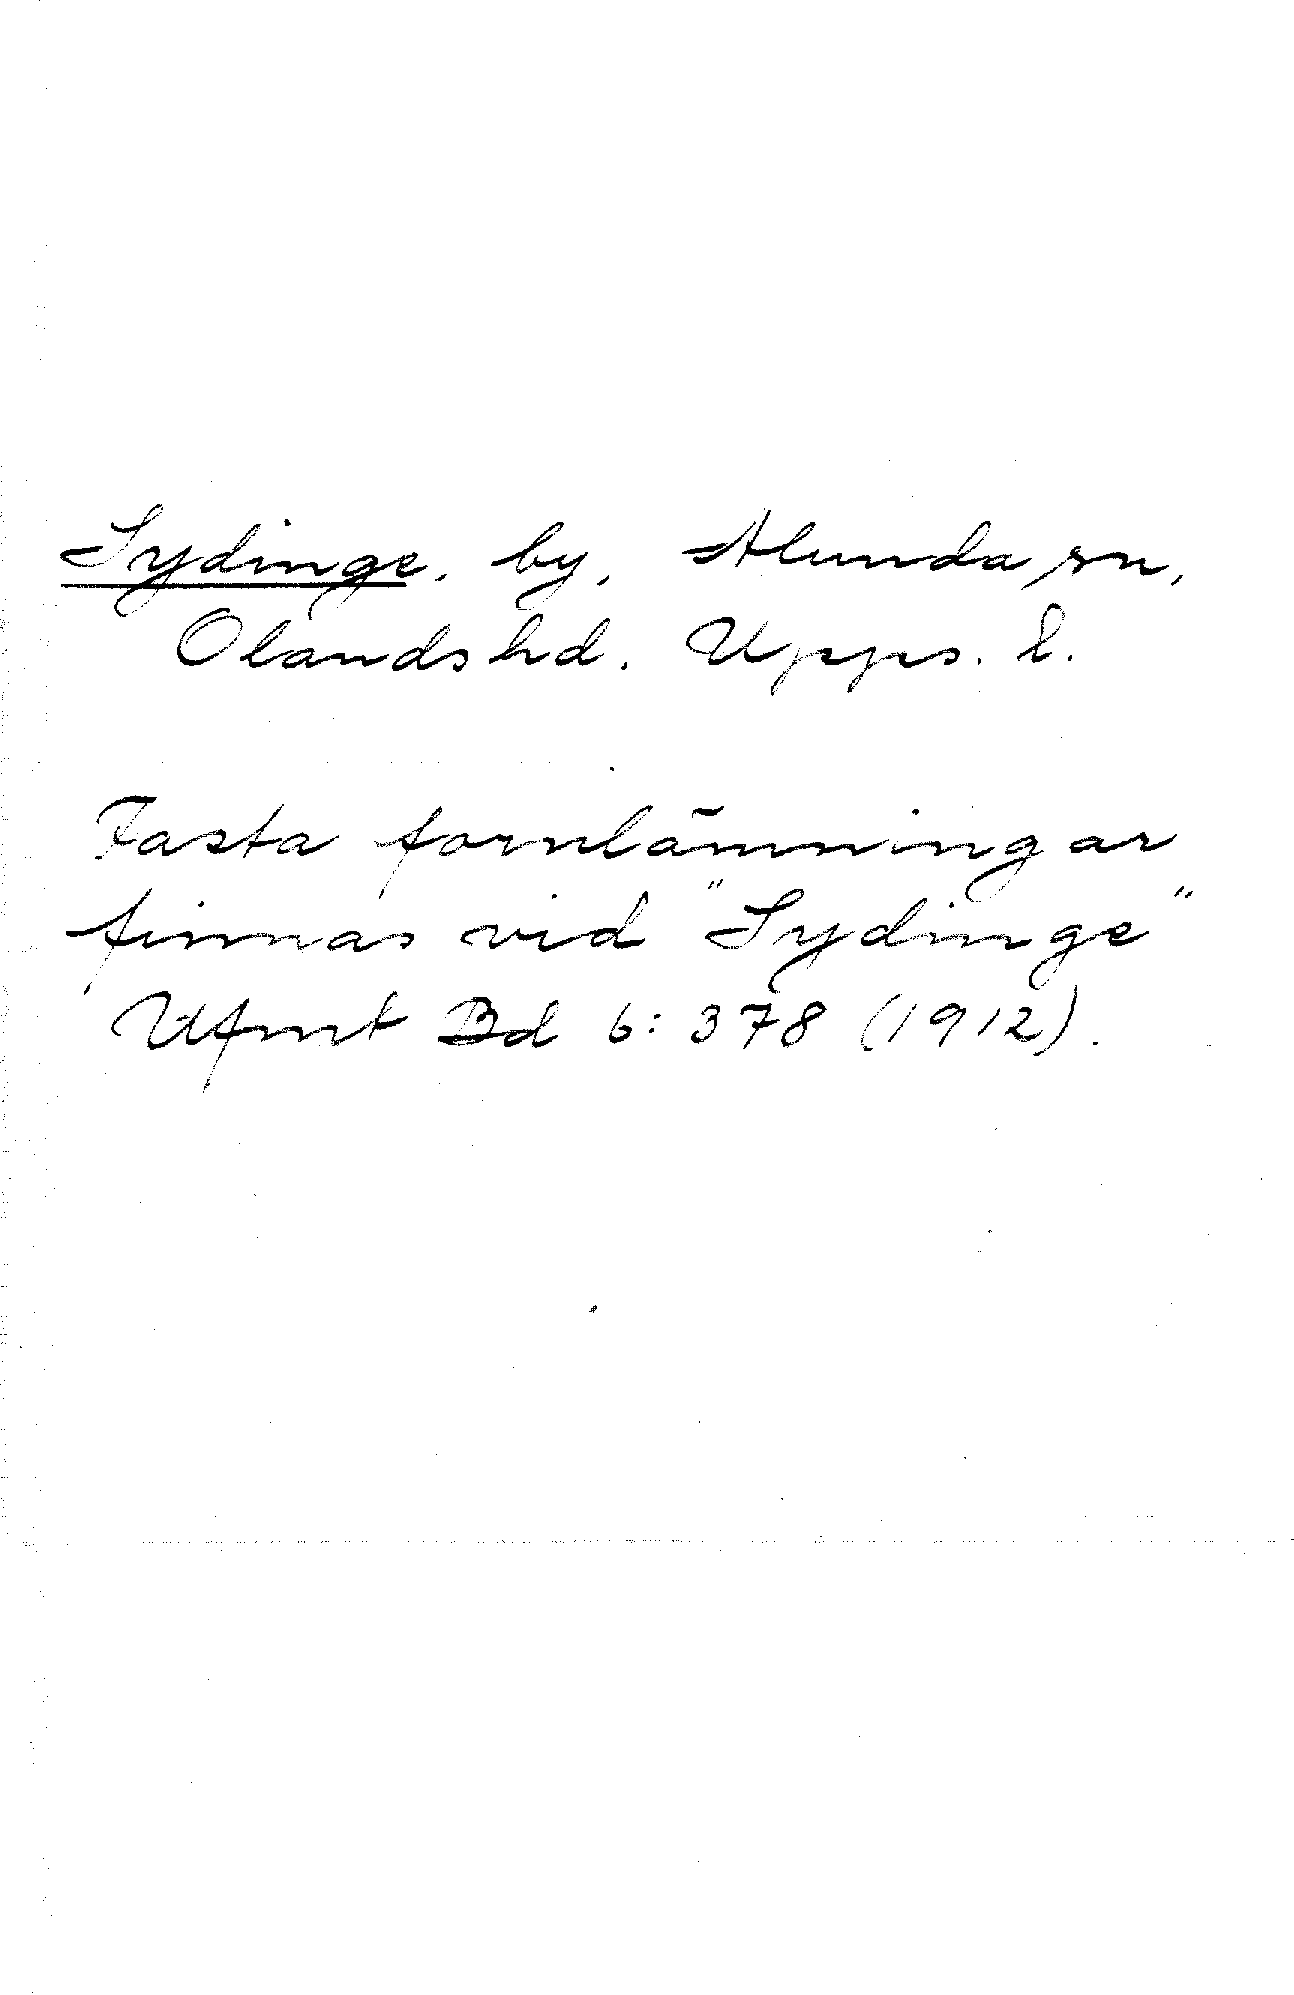 Sydinge, by, Alunda sn,
Olands hd. Upps. l.
Fasta fornlämningar
finnas vid "Sydinge"
Ufmt Bd 6: 378 (1912).